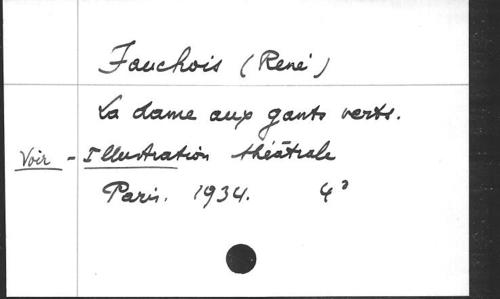 Fauchois (René)
La dame aux gants verts.
Voir - Illustration théâtrale
Paris. 1934. 4°